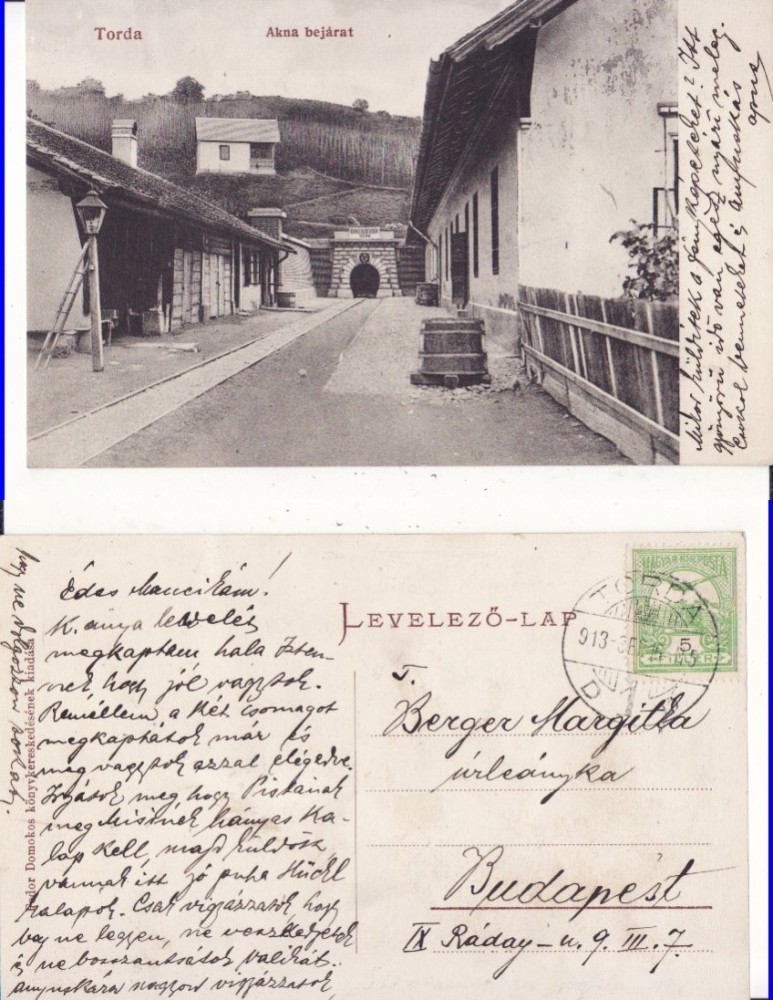 Torda
Akna bejárat
Mikor külditek a fényképeteket? Itt
gyönyörű idő van egész nyári meleg.
Csókol benneteket és anyuskás
apus
Édes Mancikám!
K. anya levelét
megkaptam hala Isten-
nek, hogy jól vagytok.
Remélem a két csomagot
megkaptátok már és
meg vagytok azzal elégedve.
Irjátok meg, hogy Pistának
meg Misinek hányas ka-
lap kell, majd küldök
vannak itt jó puha Hückl
kalapok. Csak vigyázzatok, hogy
baj ne legyen, ne veszkedjetek
és ne bosszantsátok valikát.
anyuskára nagyon vigyázzatok,
hogy ne dolgozzon sokat.
Fodor Domokos könyvkereskedésének kiadása
LEVELEZŐ-LAP
MAGYAR KIR. POSTA
5
TORDA
913
D
T.
Berger Margitka
úrleányka
Budapest
IX Ráday-u. 9. III. 7.